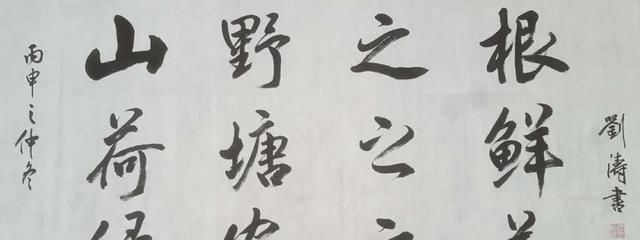 丙申之仲冬
山野之根
荷塘之鲜
劉濤書